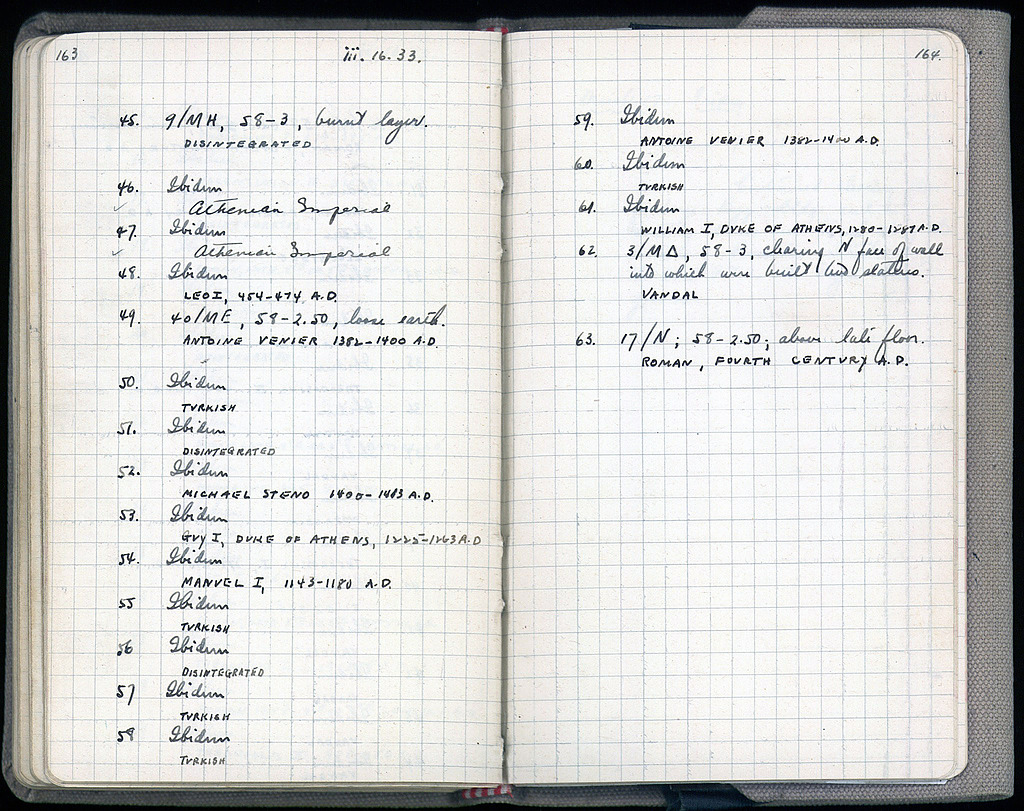 163
iii. 16. 33.
45. 9/MH, 58-3, burnt layer.
DISINTEGRATED
46. Ibidem
✓ Athenian Imperial
47. Ibidem
✓ Athenian Imperial
48. Ibidem
LEO I, 454-474 A.D.
49. 40/ME, 58-2.50, loose earth.
ANTOINE VENIER 1382-1400 A.D.
50. Ibidem
TURKISH
51. Ibidem
DISINTEGRATED
52. Ibidem
MICHAEL STENO 1400-1413 A.D.
53. Ibidem
GUY I, DUKE OF ATHENS, 1225-1263 A.D
54. Ibidem
MANUEL I, 1143-1180 A.D.
55 Ibidem
TURKISH
56 Ibidem
DISINTEGRATED
57 Ibidem
TURKISH
58 Ibidem
TURKISH
164.
59. Ibidem
ANTOINE VENIER 1382-1400 A.D.
60. Ibidem
TURKISH
61. Ibidem
WILLIAM I, DUKE OF ATHENS, 1280-1287 A.D.
62. 3/MΔ, 58-3, clearing N face of wall
into which were built two statues.
VANDAL
63. 17/N; 58-2.50; above late floor.
ROMAN, FOURTH CENTURY A.D.